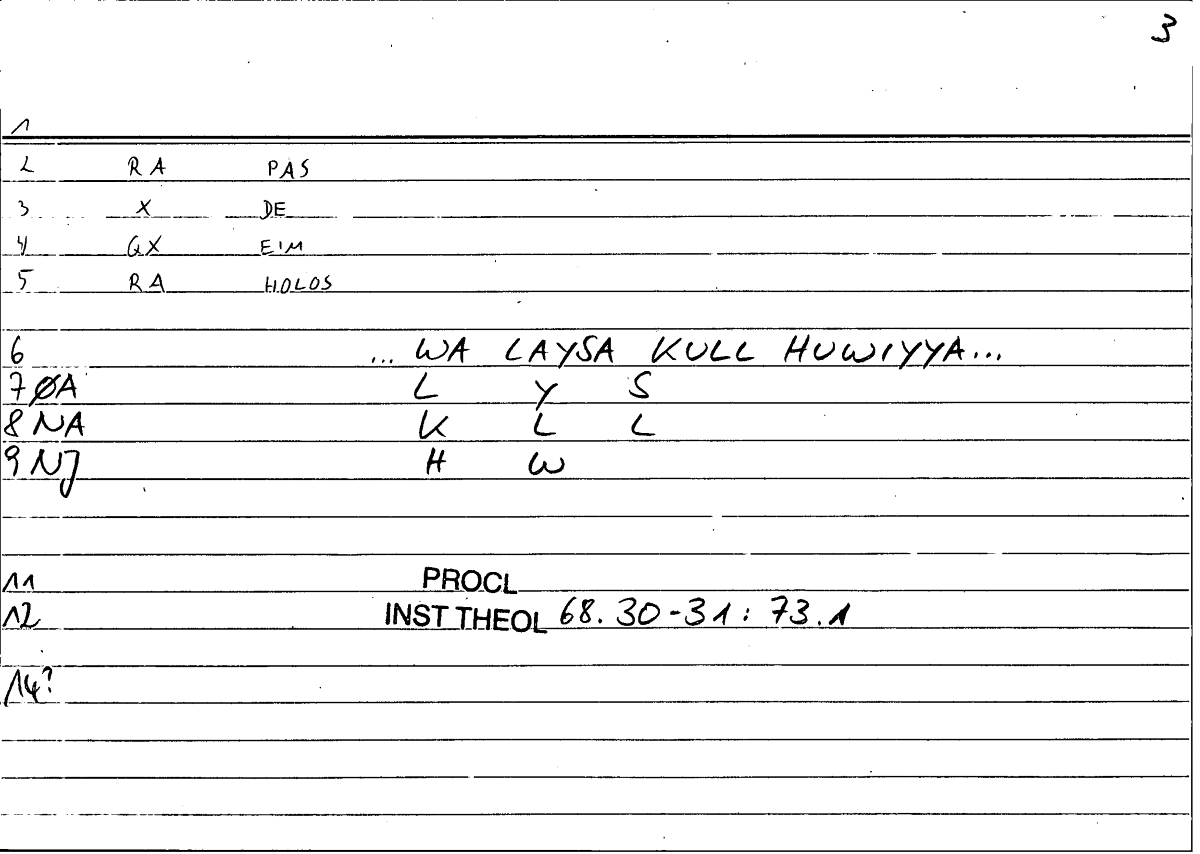 3
1
2 RA PAS
3 X DE
4 QX EIM
5 RA HOLOS
6 ... WA LAYSA KULL HUWIYYA...
7 ØA L Y S
8 NA K L L
9 NJ H W
11 PROCL
12 INST THEOL 68.30-31: 73.1
14?